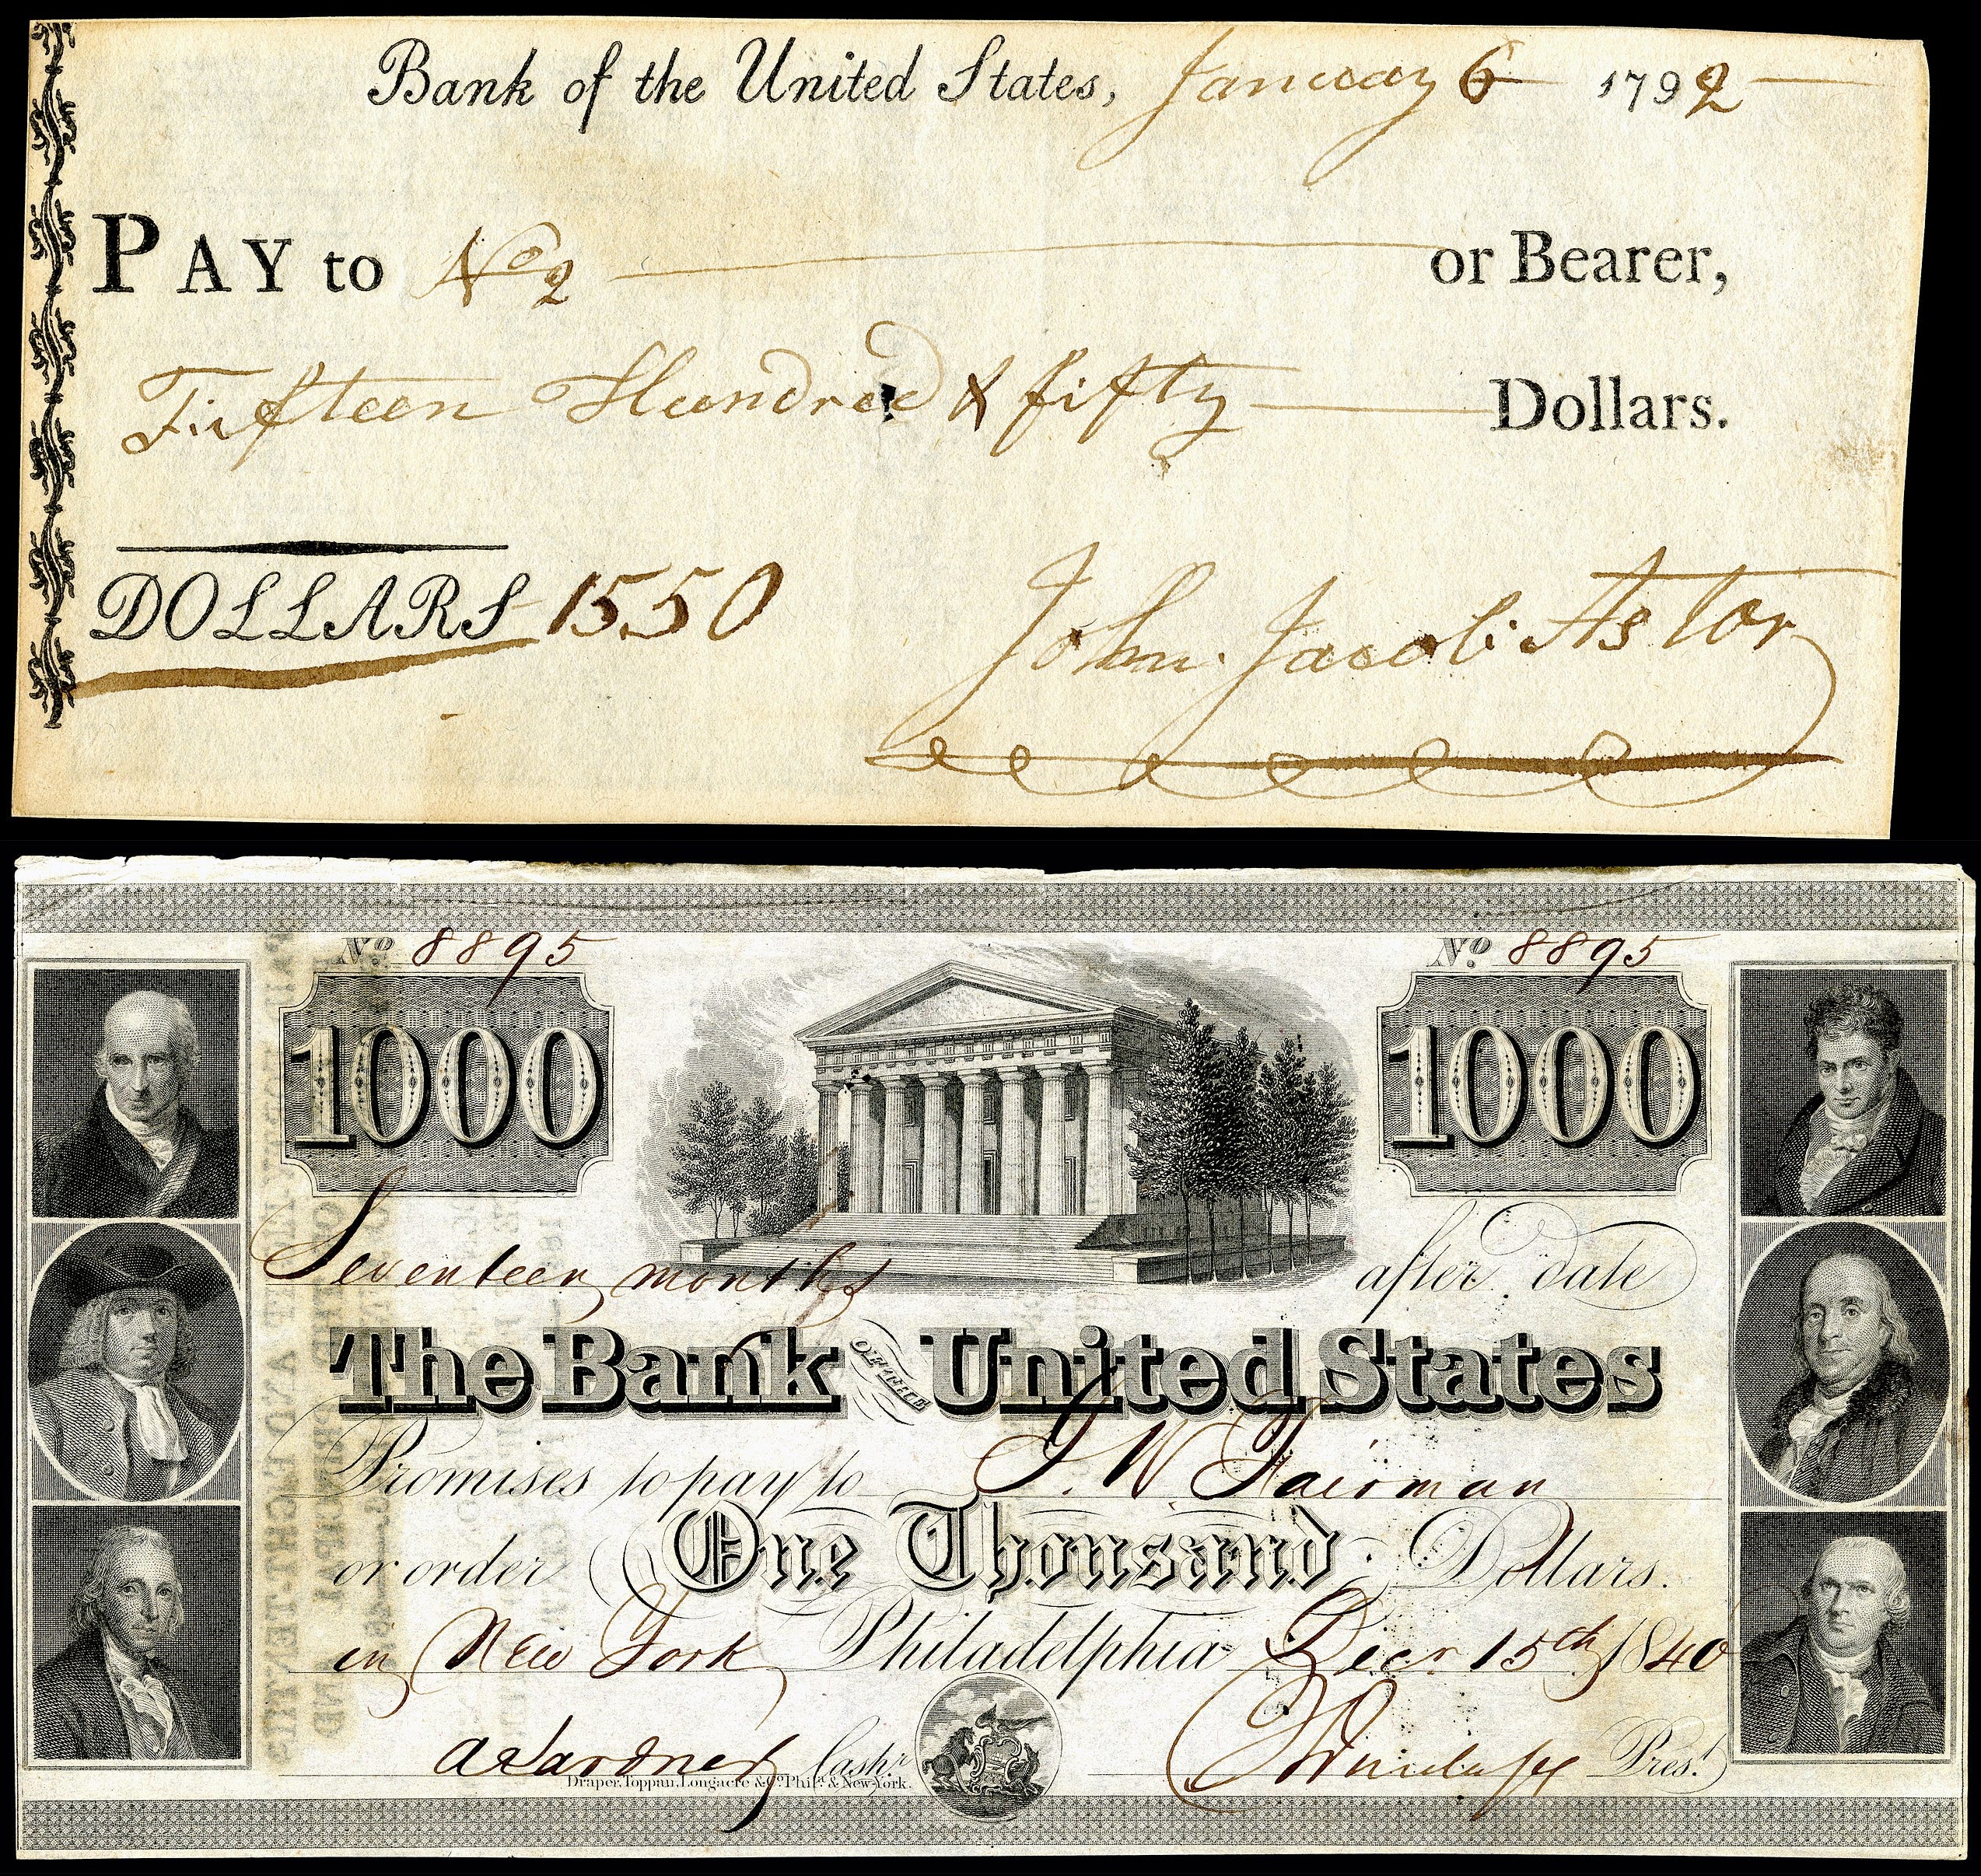 Bank of the United States, January 6 1792
PAY to No 2 or Bearer,
Fifteen Hundred & fifty Dollars.
DOLLARS 1550
John Jacob Astor
No. 8895 No. 8895
1000 1000
Seventeen months after date
The Bank OF THE United States
Promises to pay to J. W. Fairman
or order One Thousand Dollars.
in New York Philadelphia Decr. 15th 1840
Cashr. Prest.
Draper, Toppan, Longacre & Co. Phila. & New-York.